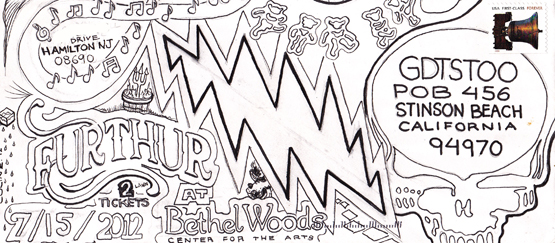 DRIVE
HAMILTON NJ
08690
USA FIRST-CLASS FOREVER
GDTSTOO
POB 456
STINSON BEACH
CALIFORNIA
94970
FURTHUR
2
TICKETS
AT
7/15/2012
Bethel Woods
CENTER FOR THE ARTS